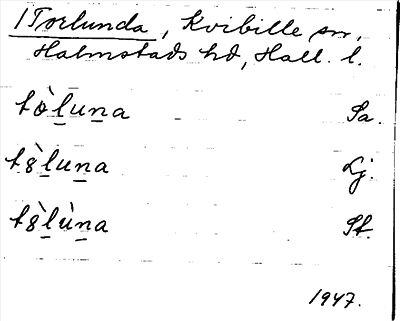 1 Torlunda, Kvibille sn,
Halmstads hd, Hall. l.
tò̀l̲un̲a Sa.
t8̀l̲un̲a Lj.
t8̀l̲ùn̲a St.
1947.